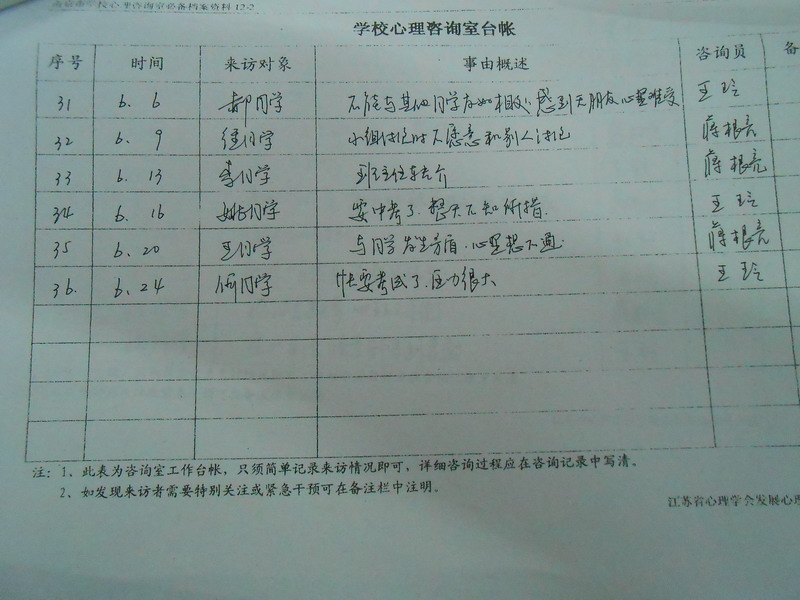 南京市学校心理咨询室必备档案资料 12-2
学校心理咨询室台帐
序号 时间 来访对象 事由概述 咨询员 备
31 6.6 郝同学 不能与其他同学友好相处，感到无朋友，心里难受 王玲
32 6.9 同学 小组讨论时不愿意和别人讨论 蒋根亮
33 6.13 李同学 班主任转介 蒋根亮
34 6.16 姚同学 要中考了，整天不知所措. 王玲
35 6.20 王同学 与同学发生矛盾.心里想不通. 蒋根亮
36. 6.24 何同学 快要考试了.压力很大 王玲
注：1、此表为咨询室工作台帐，只须简单记录来访情况即可，详细咨询过程应在咨询记录中写清。
2、如发现来访者需要特别关注或紧急干预可在备注栏中注明。
江苏省心理学会发展心理